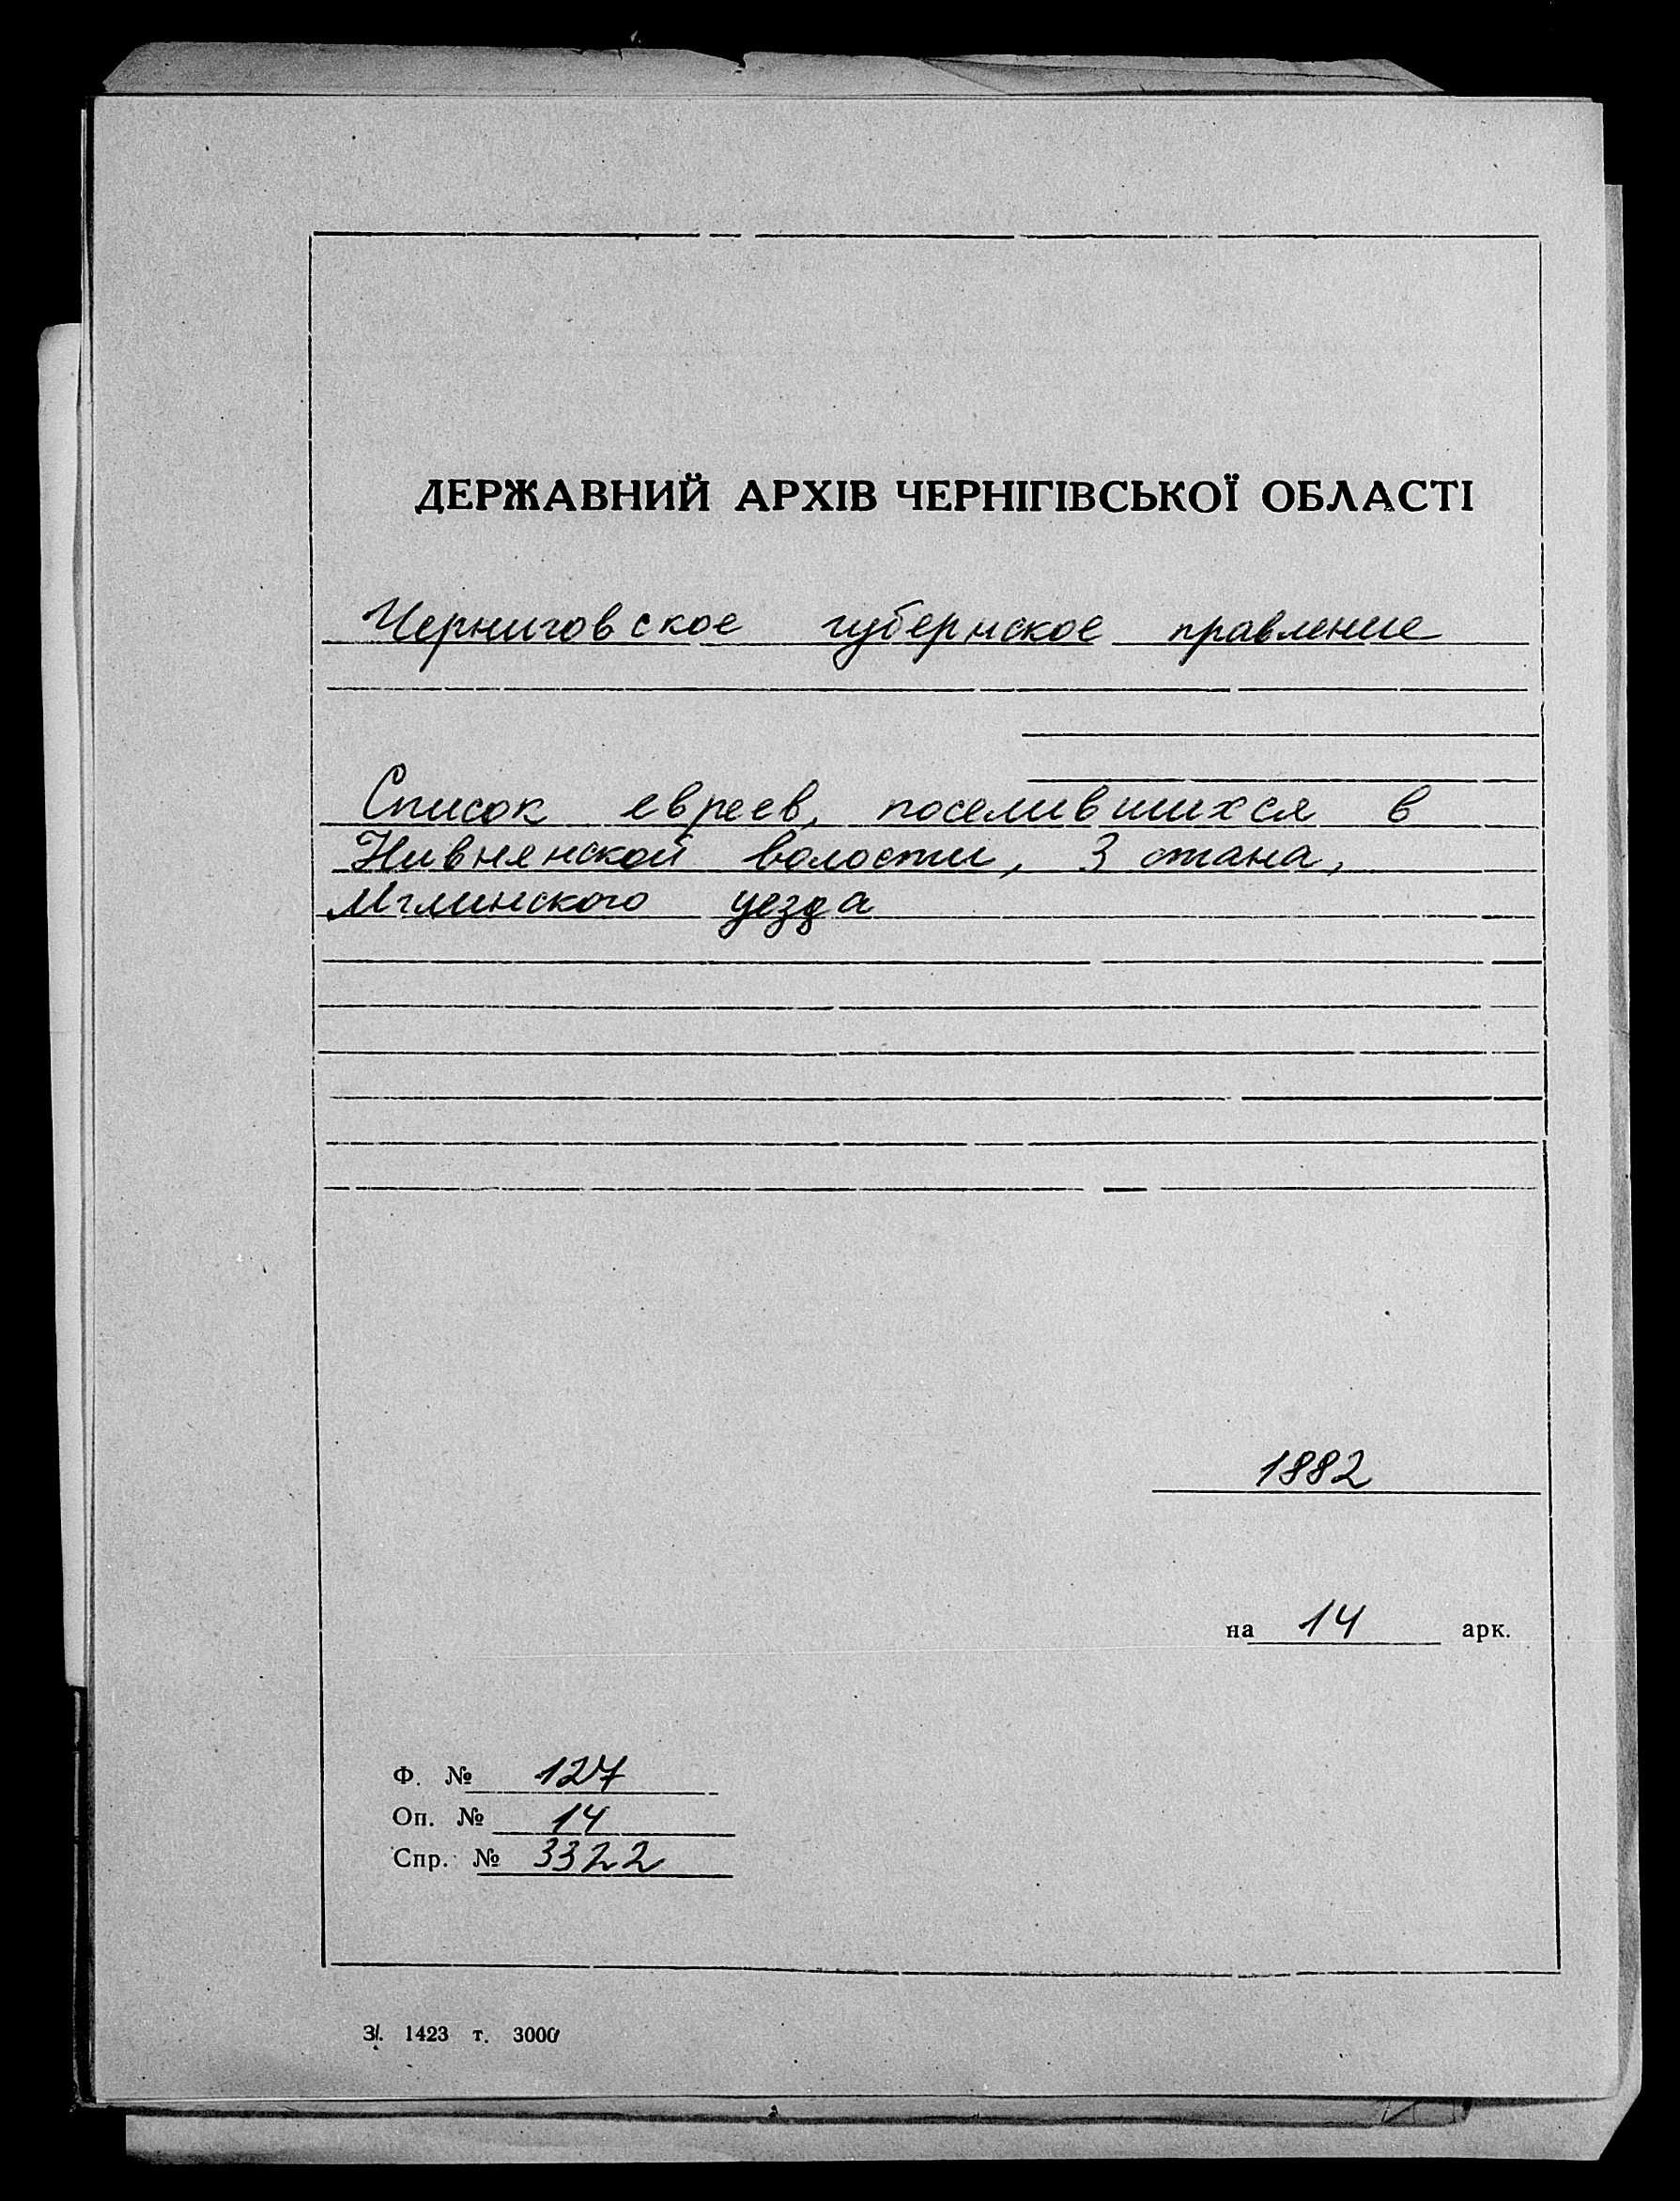 ДЕРЖАВНИЙ АРХІВ ЧЕРНІГІВСЬКОЇ ОБЛАСТІ
Черниговское губернское правление
Список евреев, поселившихся в
Нивнянской волости, 3 стана,
Мглинского уезда
1882
на 14 арк.
Ф. № 127
Оп. № 14
Спр. № 3322
З. 1423 т. 3000